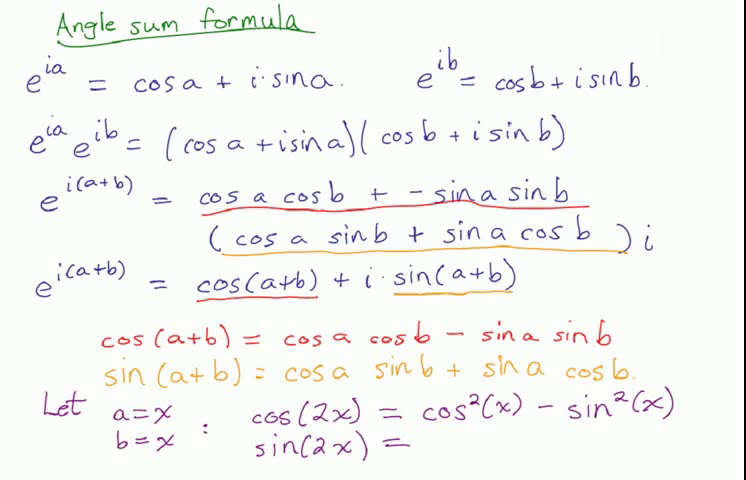 Angle sum formula
e^{ia} = cos a + i · sin a.   e^{ib} = cos b + i sin b.
e^{ia} e^{ib} = (cos a + i sin a)(cos b + i sin b)
e^{i(a+b)} = cos a cos b + - sin a sin b
(cos a sin b + sin a cos b) i
e^{i(a+b)} = cos(a+b) + i · sin(a+b)
cos(a+b) = cos a cos b - sin a sin b
sin(a+b) = cos a sin b + sin a cos b.
Let a=x : cos(2x) = cos²(x) - sin²(x)
b=x sin(2x) =